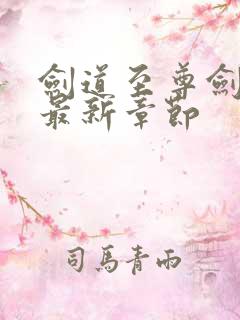 劍道至尊劍
最新章節
司馬青雨